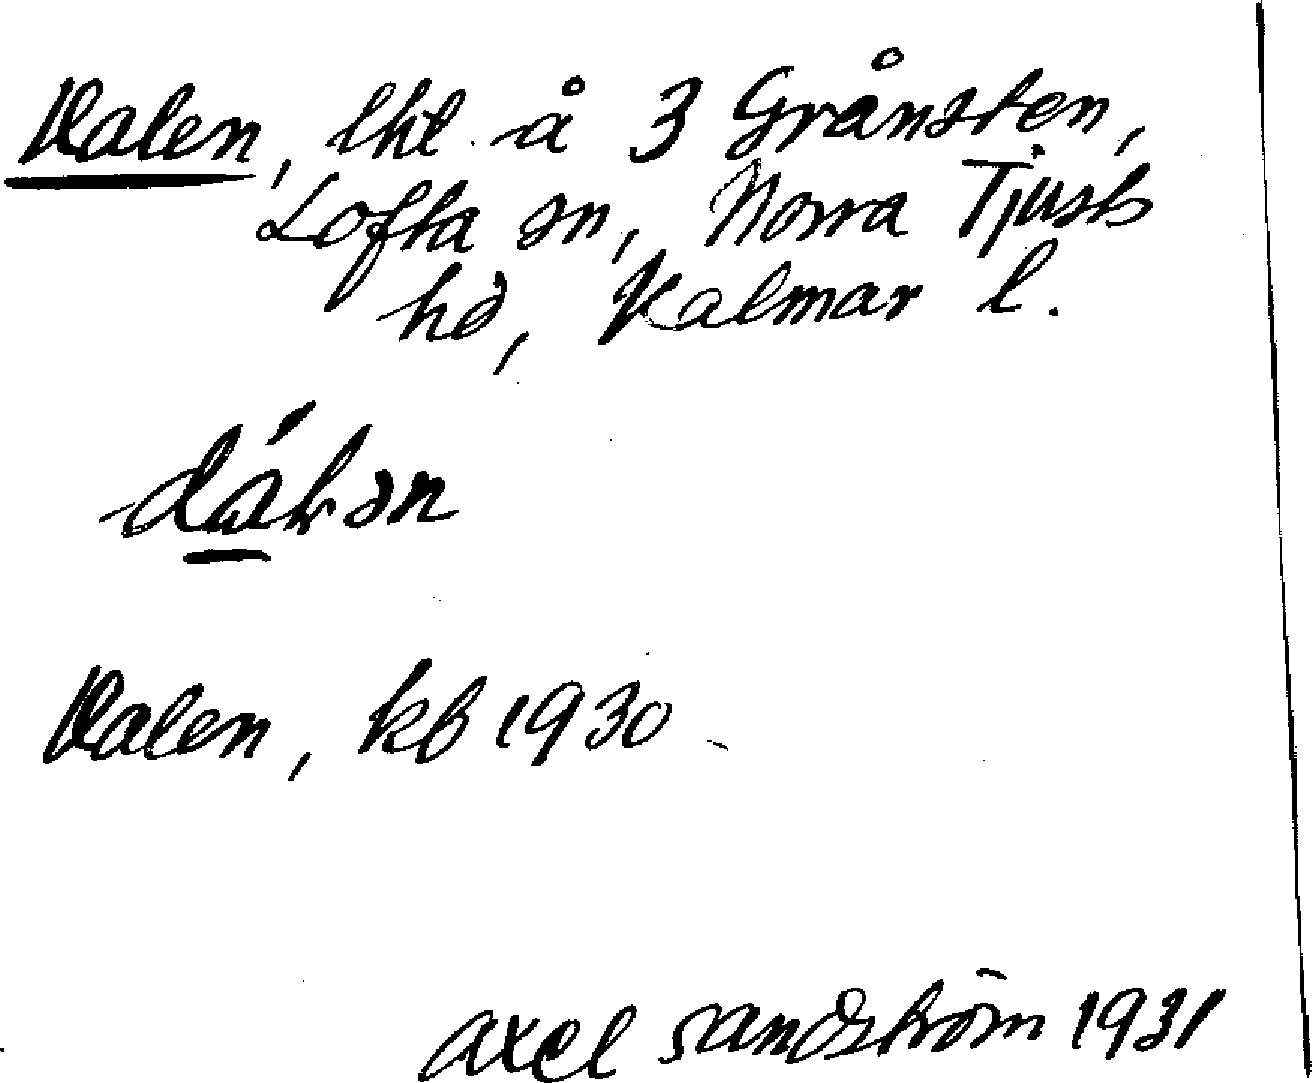 Dalen, lht å 3 Grånsten,
Lofta sn, Norra Tjusts
hd, Kalmar l.
dálən
Dalen, kb 1930
Axel Sandström 1931